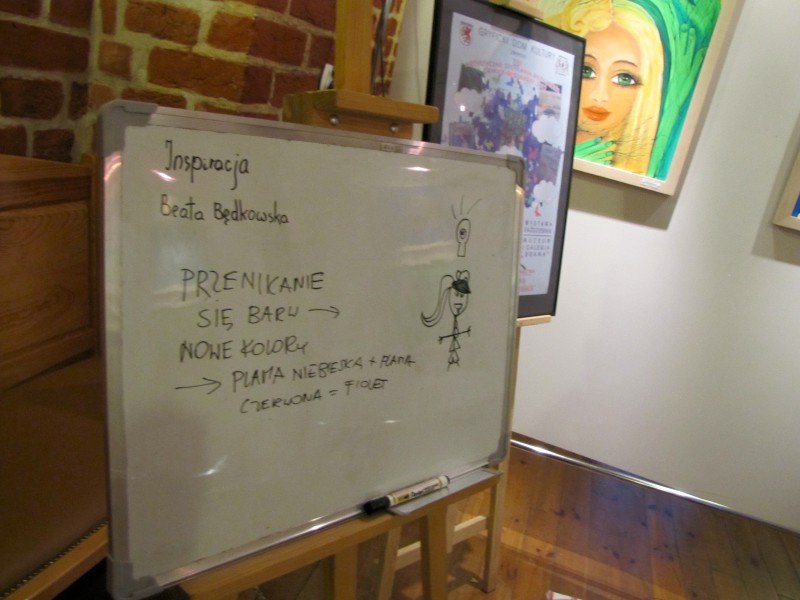 Inspiracja
Beata Będkowska
PRZENIKANIE
SIĘ BARW →
NOWE KOLORY
→ PLAMA NIEBIESKA + PLAMA
CZERWONA = FIOLET
GRYFICKI DOM KULTURY